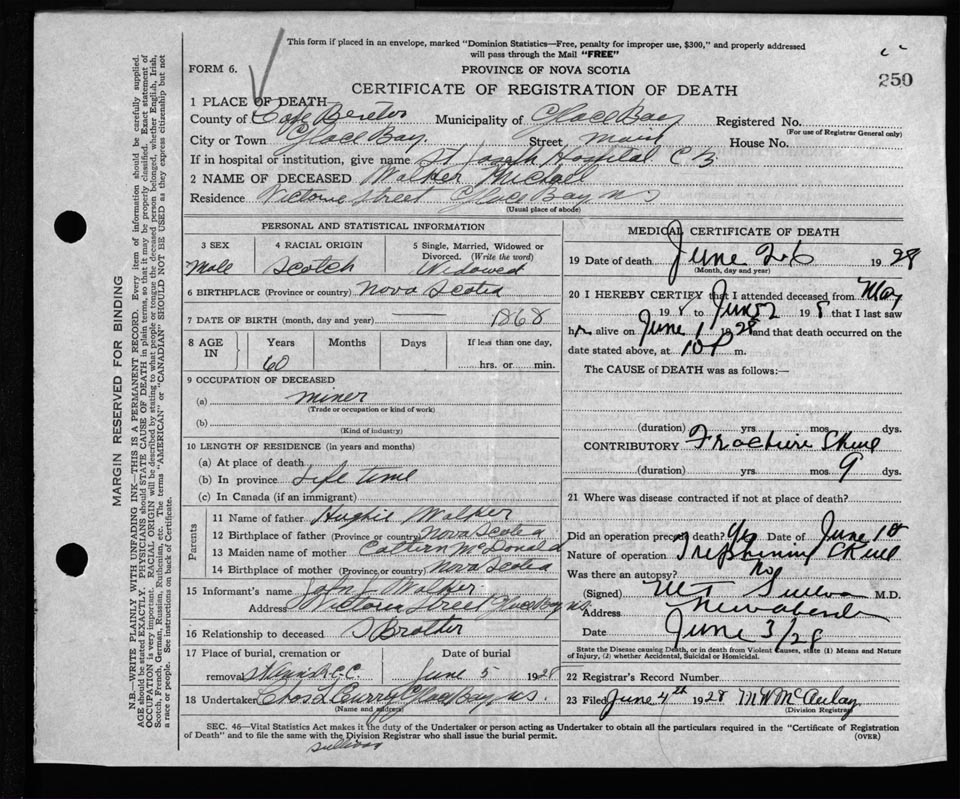 This form if placed in an envelope, marked "Dominion Statistics—Free, penalty for improper use, $300," and properly addressed
will pass through the Mail "FREE"
FORM 6.
PROVINCE OF NOVA SCOTIA
250
CERTIFICATE OF REGISTRATION OF DEATH
1 PLACE OF DEATH
County of Cape Breton Municipality of Glace Bay Registered No.
(For use of Registrar General only)
City or Town Glace Bay. Street Main House No.
If in hospital or institution, give name St Joseph Hospital C B.
2 NAME OF DECEASED Walker Michael
Residence Victoria Street Glace Bay N S
(Usual place of abode)
PERSONAL AND STATISTICAL INFORMATION
3 SEX 4 RACIAL ORIGIN 5 Single, Married, Widowed or
Divorced. (Write the word)
Male Scotch Widowed
6 BIRTHPLACE (Province or country) Nova Scotia
7 DATE OF BIRTH (month, day and year) 1868
8 AGE IN Years Months Days If less than one day,
60 hrs. or min.
9 OCCUPATION OF DECEASED
(a) miner
(Trade or occupation or kind of work)
(b)
(Kind of industry)
10 LENGTH OF RESIDENCE (in years and months)
(a) At place of death
(b) In province Life time
(c) In Canada (if an immigrant)
Parents
11 Name of father Hughie Walker
12 Birthplace of father (Province or country) Nova Scotia
13 Maiden name of mother McDonald
14 Birthplace of mother (Province or country) Nova Scotia
15 Informant's name John J Walker
Address Victoria Street Glace Bay NS
16 Relationship to deceased Brother
17 Place of burial, cremation or Date of burial
removal June 5 1928
18 Undertaker Chas L Curry Glace Bay N.S.
(Name and address)
MEDICAL CERTIFICATE OF DEATH
19 Date of death June 2 1928
(Month, day and year)
20 I HEREBY CERTIFY that I attended deceased from May
198 to June 2 198 that I last saw
him alive on June 1 1928 and that death occurred on
date stated above, at 10 P m.
The CAUSE of DEATH was as follows:
(duration) yrs mos dys.
CONTRIBUTORY Fracture Skull
(duration) yrs. mos 9 dys.
21 Where was disease contracted if not at place of death?
Did an operation precede death? Yes Date of June 1st
Nature of operation Trephining Skull
Was there an autopsy? No
(Signed) M T Sullivan M.D.
Address New Aberdeen
Date June 3/28
State the Disease causing Death, or in death from Violent Causes, state (1) Means and Nature
of Injury, (2) whether Accidental, Suicidal or Homicidal.
22 Registrar's Record Number
23 Filed June 4th 1928 M W McAulay
(Division Registrar)
SEC. 46—Vital Statistics Act makes it the duty of the Undertaker or person acting as Undertaker to obtain all the particulars required in the "Certificate of Registration
of Death" and to file the same with the Division Registrar who shall issue the burial permit.
(OVER)
Sullivan
MARGIN RESERVED FOR BINDING
N.B.—WRITE PLAINLY WITH UNFADING INK—THIS IS A PERMANENT RECORD. Every item of information should be carefully supplied.
AGE should be stated EXACTLY. PHYSICIANS should STATE CAUSE OF DEATH in plain terms, so that it may be properly classified. Exact statement of
OCCUPATION is very important. RACIAL ORIGIN will be described by stating to what people or tongue the deceased person belonged, whether English, Irish,
Scotch, French, German, Russian, Ruthenian, etc. The terms "AMERICAN" or "CANADIAN" SHOULD NOT BE USED as they express citizenship but not
a race or people. See instructions on back of Certificate.